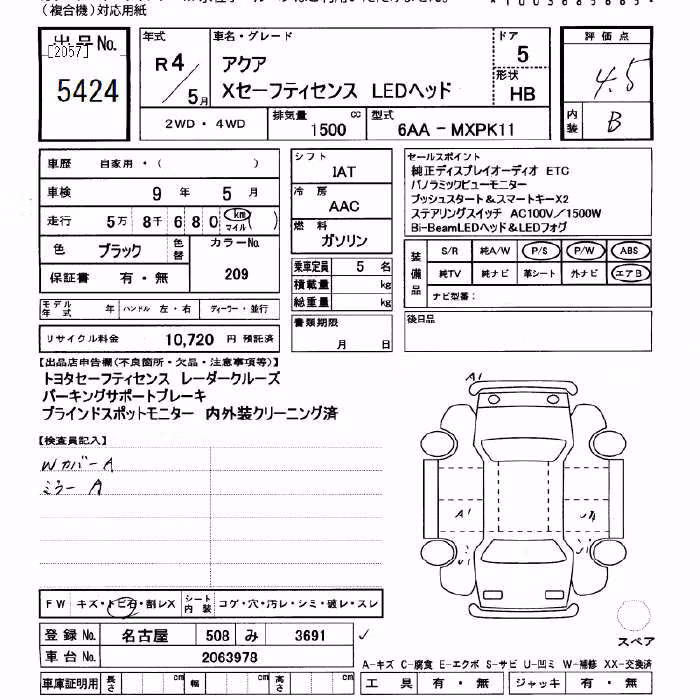 (複合機)対応用紙
出品No.
[2057]
5424
年式
R4/5月
車名・グレード
アクア
Xセーフティセンス LEDヘッド
ドア
5
形状
HB
評価点
4.5
内装
B
2WD・4WD
排気量
1500 cc
型式
6AA-MXPK11
車歴 自家用・( )
車検 9年 5月
走行 5万 8千 6 8 0 km マイル( )
色 ブラック 色替
カラーNo.
209
保証書 有・無
モデル年式 年 ハンドル 左・右 ディーラー・並行
リサイクル料金 10,720 円 預託済
シフト
IAT
冷房
AAC
燃料
ガソリン
乗車定員 5 名
積載量 kg
総重量 kg
書類期限
月 日
セールスポイント
純正ディスプレイオーディオ ETC
パノラミックビューモニター
プッシュスタート&スマートキーX2
ステアリングスイッチ AC100V/1500W
Bi-BeamLEDヘッド&LEDフォグ
装備品
S/R 純A/W P/S P/W ABS
純TV 純ナビ 革シート 外ナビ エアB
ナビ型番:
後日品
【出品店申告欄(不良箇所・欠品・注意事項等)】
トヨタセーフティセンス レーダークルーズ
パーキングサポートブレーキ
ブラインドスポットモニター 内外装クリーニング済
【検査員記入】
Wカバー A
ミラー A
A1
A1
FW キズ・トビ石・割レX シート内装 コゲ・穴・汚レ・シミ・破レ・スレ
登録No. 名古屋 508 み 3691
車台No. 2063978
スペア
A-キズ C-腐食 E-エクボ S-サビ U-凹ミ W-補修 XX-交換済
車庫証明用 長さ cm 幅 cm 高さ cm
工具 有・無 ジャッキ 有・無